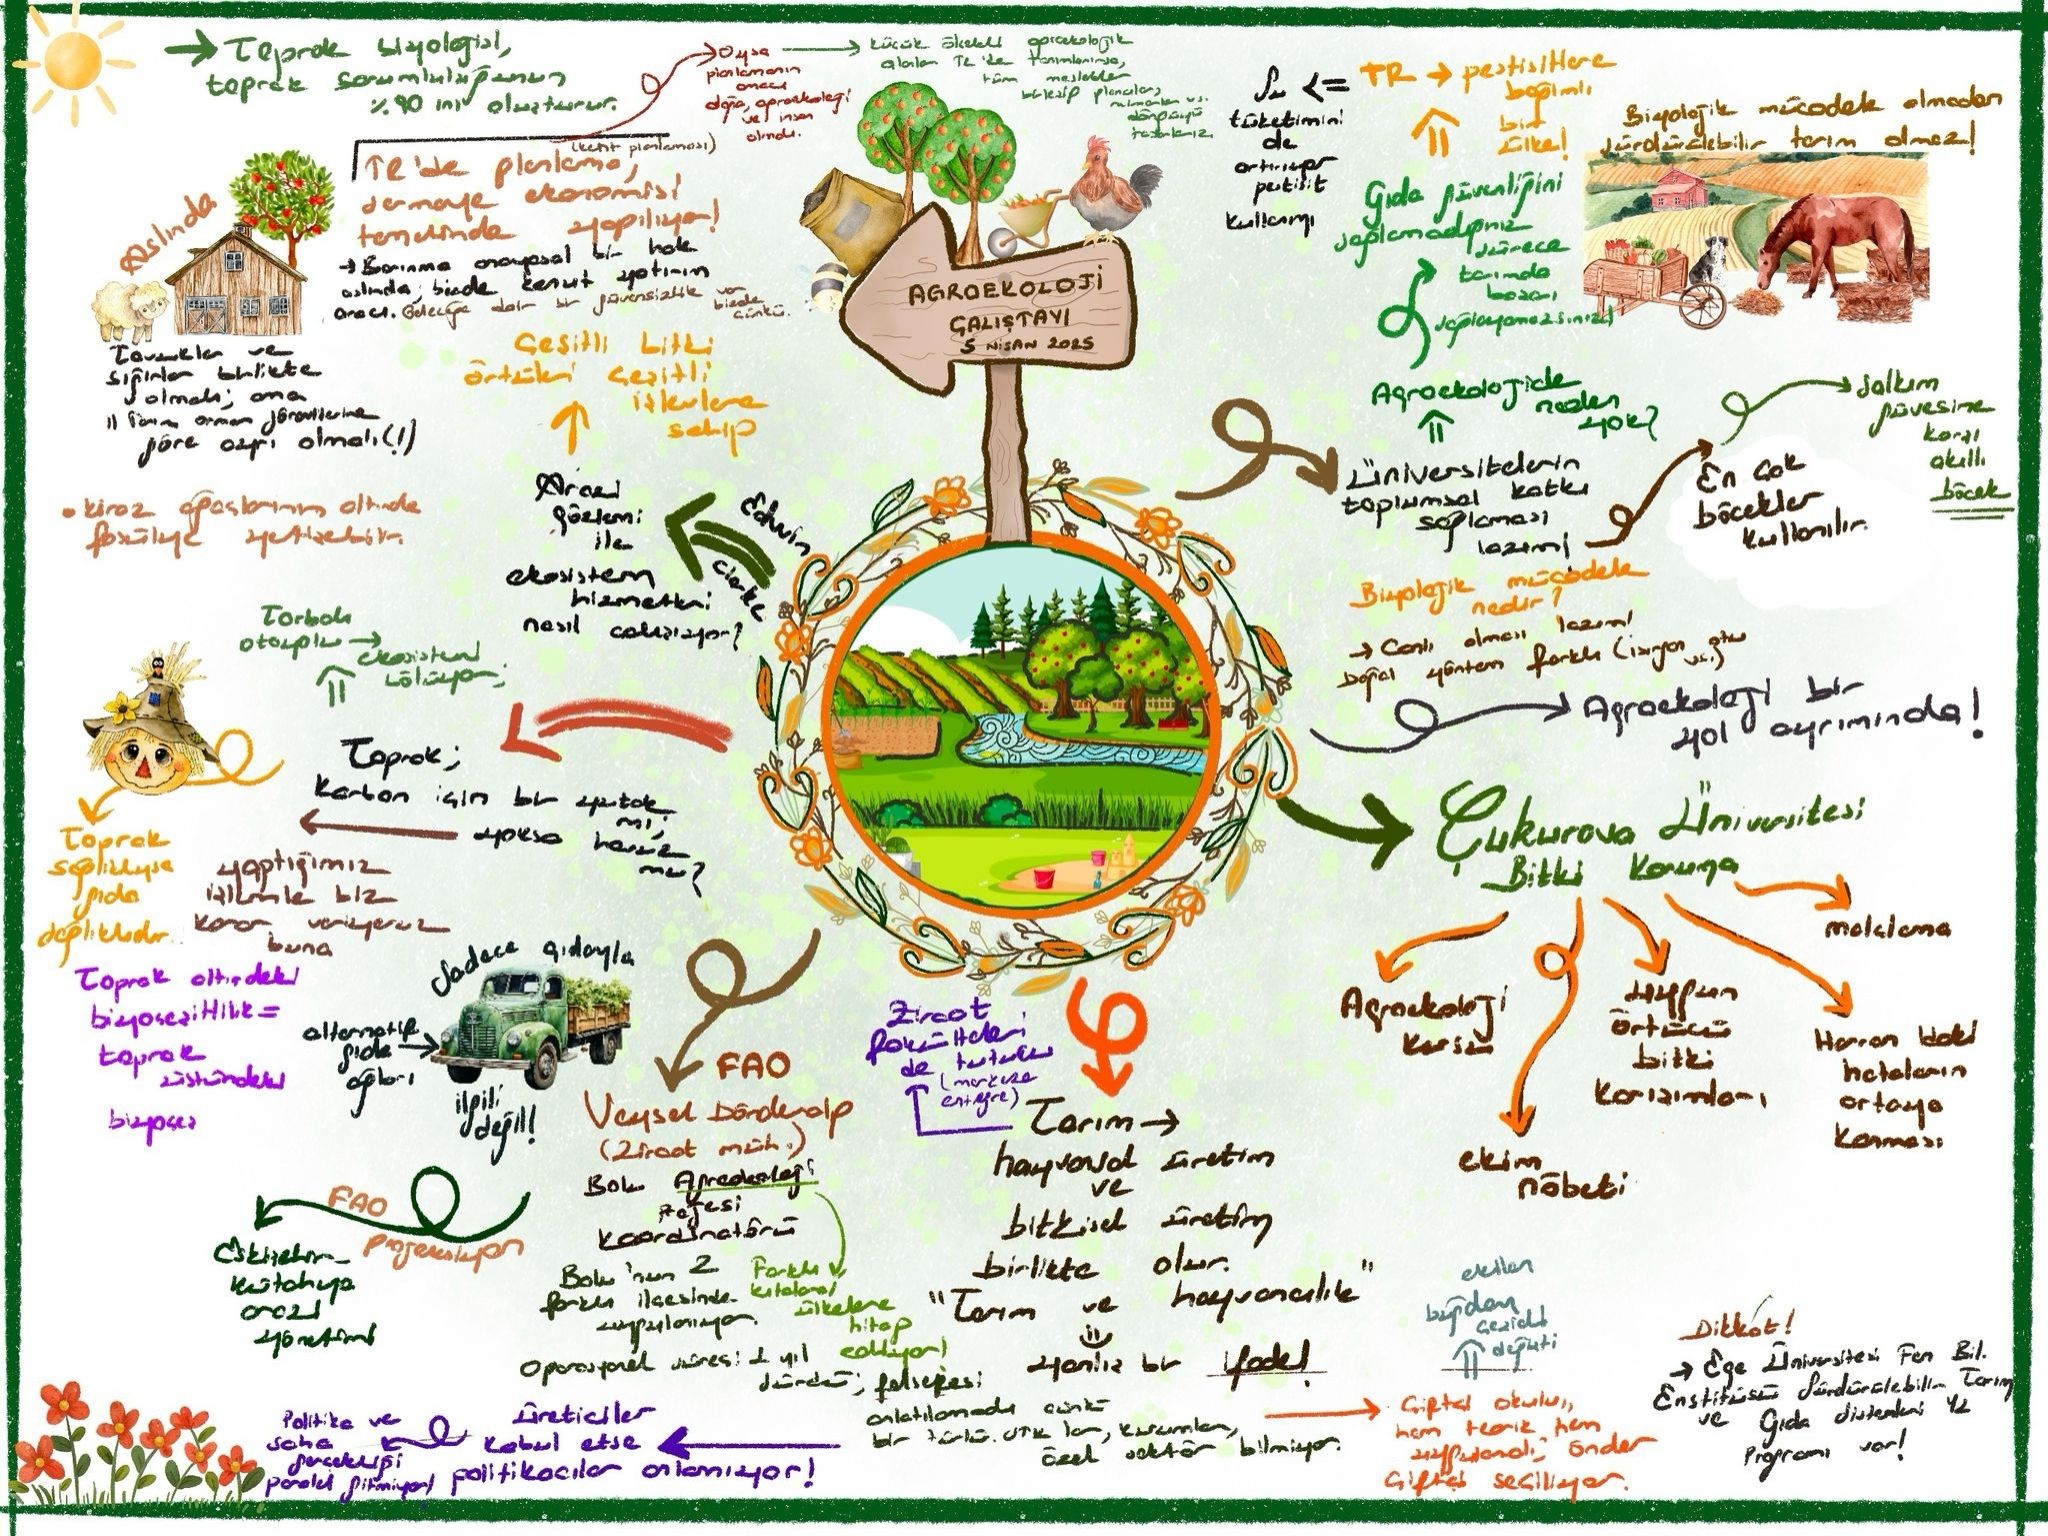 → Toprak biyolojisi,
toprak sorumluluğunun
%90 ını oluşturur.
Oysa
planlamanın
amacı
doğa, agroekoloji
ve insan
olmalı.
küçük ölçekli agroekolojik
alanlar TR'de tanımlanırsa,
tüm meslekler
birleşip plancılar,
mimarlar vs.
dönüşümü
tasarlarız.
(kent planlaması)
TR'de planlama,
sermaye ekonomisi
temelinde yapılıyor!
→ Barınma anayasal bir hak
aslında; bizde konut yatırım
aracı. Geleceğe dair bir güvensizlik var
bizde
çünkü.
Aslında
Tavuklar ve
sığırlar birlikte
olmalı; ama
İl Tarım Orman görevlilerine
göre ayrı olmalı(!)
• Kiraz ağaçlarının altında
fasülye yetişebilir.
AGROEKOLOJİ
ÇALIŞTAYI
5 NİSAN 2025
Su <=
tüketimini
de
artırıyor
pestisit
kullanımı
TR → pestisitlere
bağımlı
bir
ülke!
Biyolojik mücadele olmadan
sürdürülebilir tarım olmaz!
Gıda güvenliğini
sağlamadığınız
sürece
tarımda
başarı
sağlayamazsınız!
Agroekolojide
neden
yok?
Üniversitelerin
toplumsal katkı
sağlaması
lazım!
En çok
böcekler
kullanılır.
salkım
güvesine
karşı
akıllı
böcek
Biyolojik mücadele
nedir?
→ Canlı olması lazım!
Doğal yöntem farklı (ısırgan otu
vs.)
Agroekoloji bir
yol ayrımında!
Çukurova Üniversitesi
Bitki Koruma
malçlama
Agroekoloji
kursu
uygun
örtücü
bitki
karışımları
Harran'daki
hataların
ortaya
konması
ekim
nöbeti
Çeşitli bitki
örtüleri çeşitli
işlevlere
sahip
Arazi
gözlemi
ile
ekosistem
hizmetleri
nasıl çalışıyor?
Edwin
Clerke
Torbalı
otoyolu → ekosistemi
bölüyor;
Toprak;
Karbon için bir yutak
mı;
yoksa havuz
mu?
yaptığımız
işlemlerle biz
karar veriyoruz
buna
Toprak
sağlıklıysa
gıda
sağlıklıdır.
Toprak altındaki
biyoçeşitlilik =
toprak
üstündeki
biyoçeş
Sadece gıdayla
alternatif
gıda →
ağları
ilgili
değil!
FAO
Veysel Dönderalp
(Ziraat müh.)
Bolu Agroekoloji
Projesi
koordinatörü
Bolu'nun 2
farklı ilçesinde
uygulanıyor.
Farklı
kıtalara/
ülkelere
hitap
ediliyor!
Operasyonel süresi 1 yıl
sürdü; felsefesi
anlatılamadı çünkü
bir türlü. STK lar, kurumlar,
özel sektör bilmiyor.
FAO
Projeksiyon
Eskişehir-
Kütahya
arazi
yönetimi
Ziraat
fakülteleri
de tutucu
(markaza
entegre)
Tarım →
hayvansal üretim
ve
bitkisel üretim
birlikte olur.
"Tarım ve hayvancılık"
yanlış bir ifade!
üreticiler
kabul etse
politikacılar anlamıyor!
Politika ve
saha
gerçekliği
paralel gitmiyor!
ekilen
buğday
çeşidi
değişti
Çiftçi okulu,
hem teorik hem
uygulamalı; önder
Çiftçi seçiliyor.
Dikkat!
→ Ege Üniversitesi Fen Bil.
Enstitüsü Sürdürülebilir Tarım
ve Gıda Sistemleri YL
programı var!